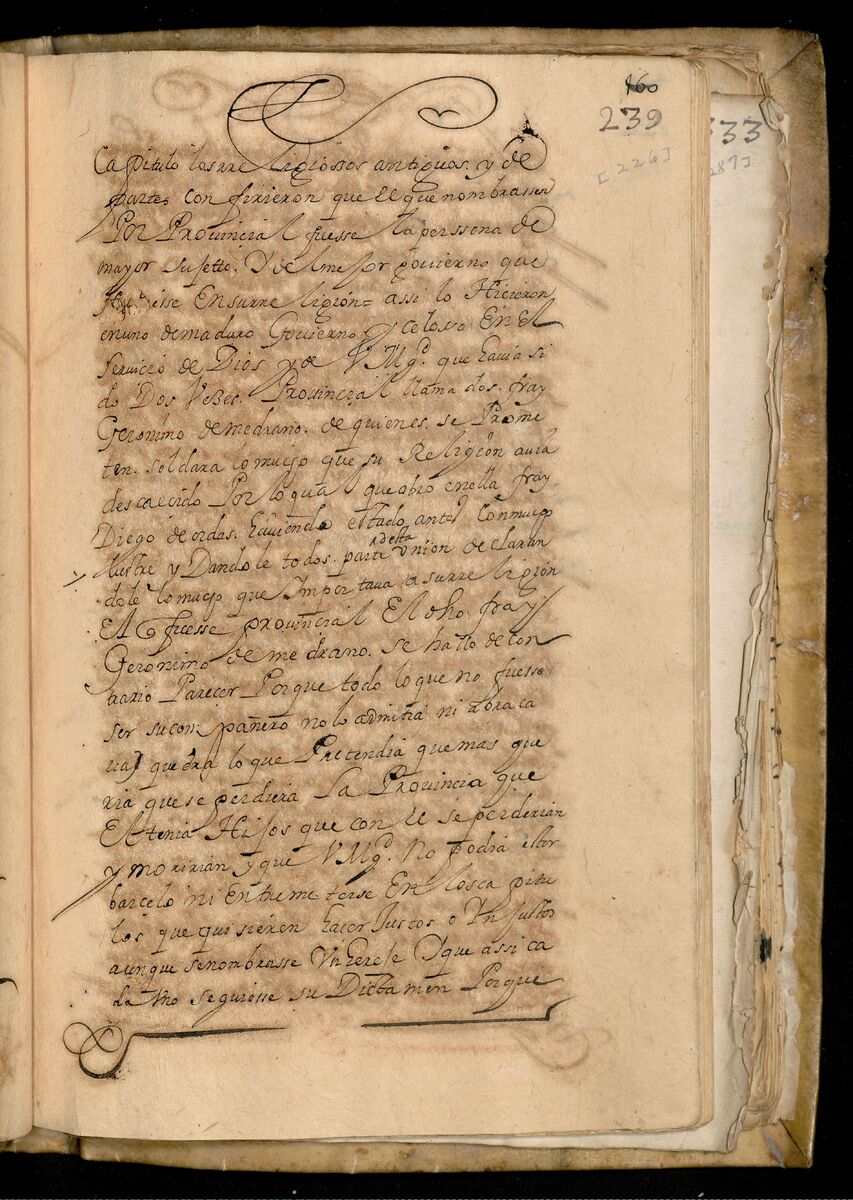 160
239
[226]
333
287]
Capitulo los rreligiossos antiguos. y de
partes confirieron que El que nombrassen
Por Provincial fuesse la perssona de
mayor Sujetto, Y del mejor govierno que
Hu°iesse En su rreligion= assi lo Hicieron
en uno de maduro Govierno y celosso En El
Servicio de Dios y de V Mgd. que havia si
do Dos Vezes. Provincial llamados. fray
Geronimo de medrano. de quienes. se Prome
ten. soldara lo mucho que su Religion avia
descaecido Por lo qual que obro en ella fray
Diego de ordas. haviendo estado antes Con mucho
lustre y Dandole todos. parte desta Union declaran
dole lo mucho que Importava a su rreligion
El q fuesse provincial El dho fray
Geronimo de medrano. se hallo de con
trario Parecer Porque todo lo que no fuesse
ser su compañero no lo admitia ni abraca
ria que era lo que Pretendia que mas que
ria que se perdiera La Provincia que
El tenia Hijos que con El se perderian
y moririan y que V Mgd. No podia estor
barcelo ni Entremeterse En los capitu
los que quisieren hacer Justos o Injustos
aunque se nombrasse Un hereje Y que assi ca
da Vno seguiesse su Dictamen Porque